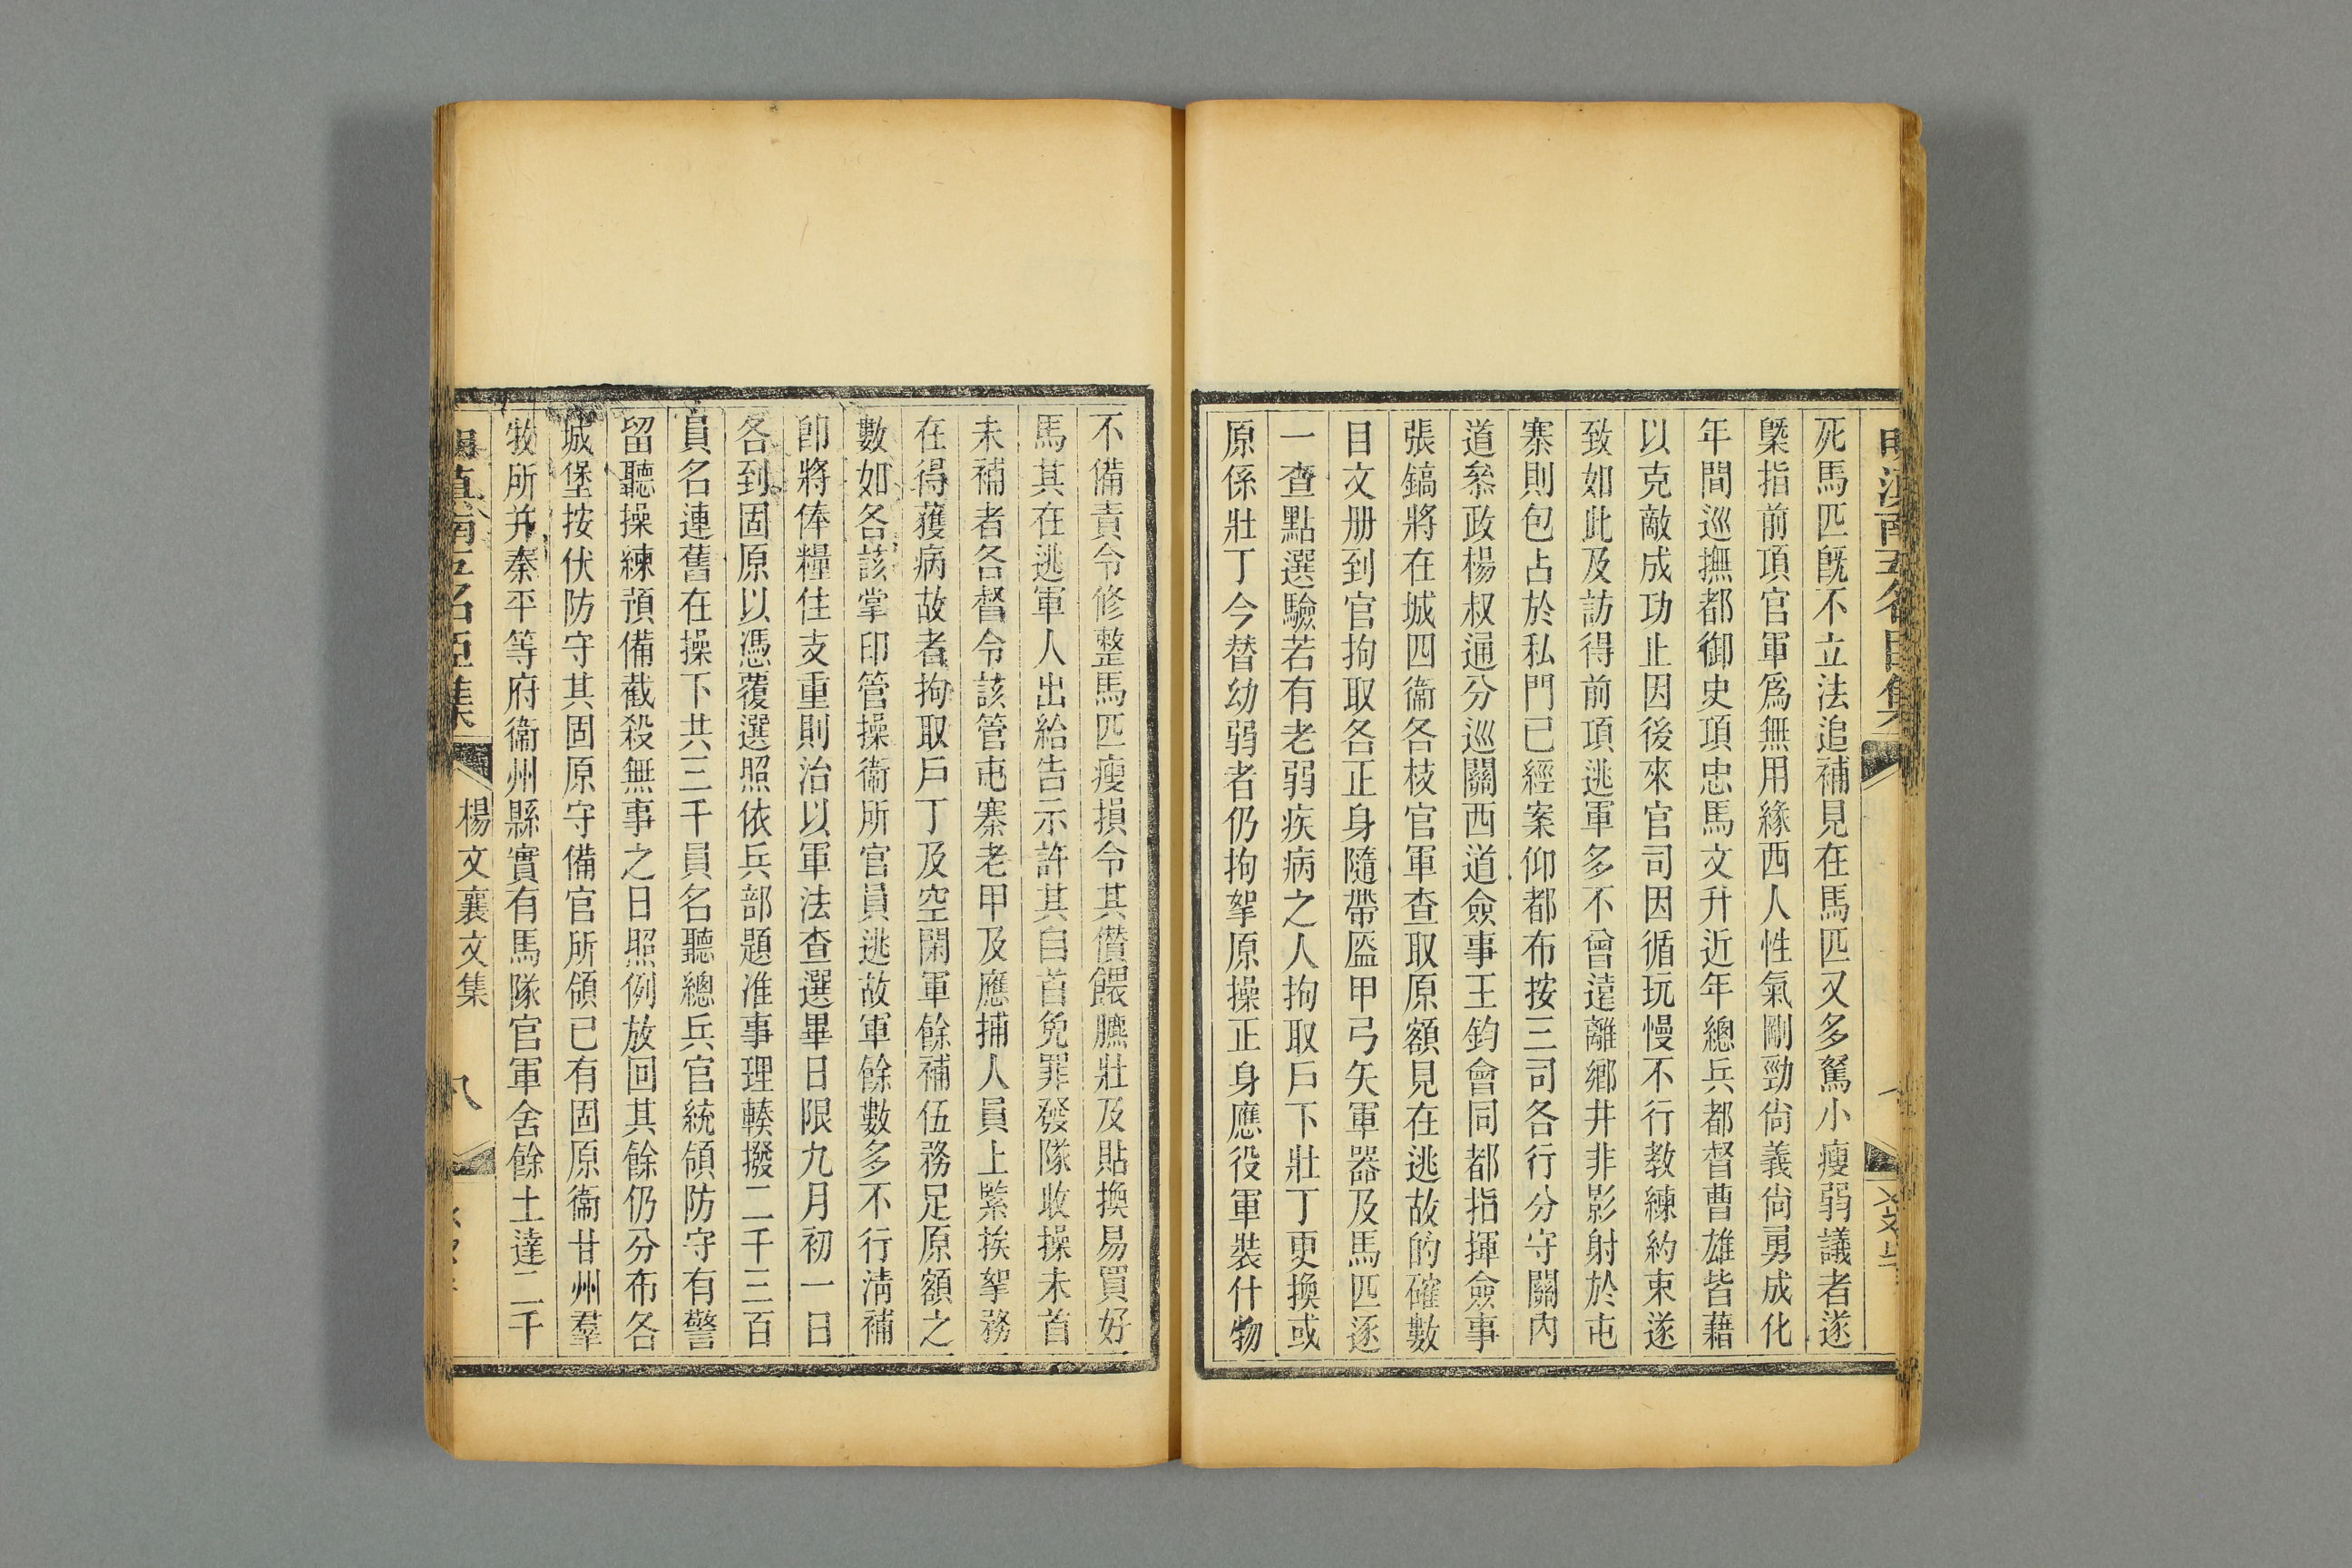 死馬匹旣不立法追補見在馬匹又多駑小瘦弱議者遂
槩指前項官軍爲無用緣西人性氣剛勁尙義尙勇成化
年間巡撫都御史項忠馬文升近年總兵都督曹雄皆藉
以克敵成功止因後來官司因循玩慢不行教練約束遂
致如此及訪得前項逃軍多不曾遠離鄉井非影射於屯
寨則包占於私門已經案仰都布按三司各行分守關內
道叅政楊叔通分巡關西道僉事王鈞會同都指揮僉事
張鎬將在城四衞各枝官軍查取原額見在逃故的確數
目文册到官拘取各正身隨帶盔甲弓矢軍器及馬匹逐
一查點選驗若有老弱疾病之人拘取戶下壯丁更換或
原係壯丁今替幼弱者仍拘拏原操正身應役軍裝什物
不備責令修整馬匹瘦損令其償餵臕壯及貼換易買好
馬其在逃軍人出給告示許其自首免罪發隊收操未首
未補者各督令該管屯寨老甲及應捕人員上緊挨拏務
在得獲病故者拘取戶丁及空閑軍餘補伍務足原額之
數如各該掌印管操衞所官員逃故軍餘數多不行淸補
卽將俸糧住支重則治以軍法查選畢日限九月初一日
各到固原以憑覆選照依兵部題准事理輳撥二千三百
員名連舊在操下共三千員名聽總兵官統領防守有警
留聽操練預備截殺無事之日照例放回其餘仍分布各
城堡按伏防守其固原守備官所領已有固原衞甘州羣
牧所并秦平等府衞州縣實有馬隊官軍舍餘土達二千
滇南五名臣集 楊文襄文集 八